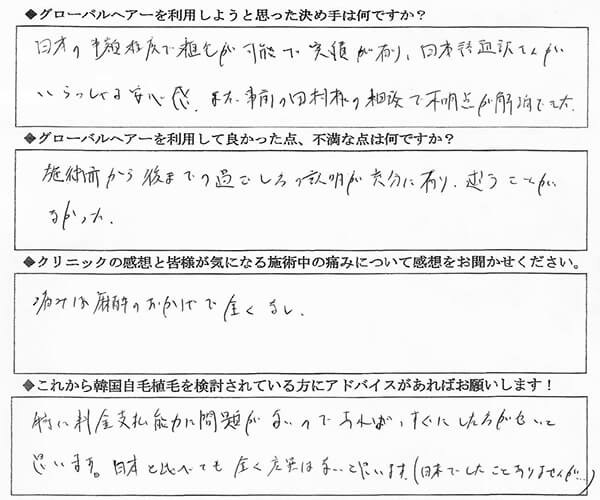 ◆グローバルヘアーを利用しようと思った決め手は何ですか？
日本の半額程度で植毛が可能で実績が有り、日本語通訳さんが
いらっしゃる安心感。また、事前の田村様の相談で不明点が解消できた。
◆グローバルヘアーを利用して良かった点、不満な点は何ですか？
施術前から後までの過ごしろの説明が充分に有り、迷うことが
なかった。
◆クリニックの感想と皆様が気になる施術中の痛みについて感想をお聞かせください。
痛みは麻酔のおかげで全くなし。
◆これから韓国自毛植毛を検討されている方にアドバイスがあればお願いします！
特に料金支払能力に問題がないのであれば、すぐにした方がいいと
思います。日本と比べても全く差異はないと思います。(日本でしたことありませんが…)